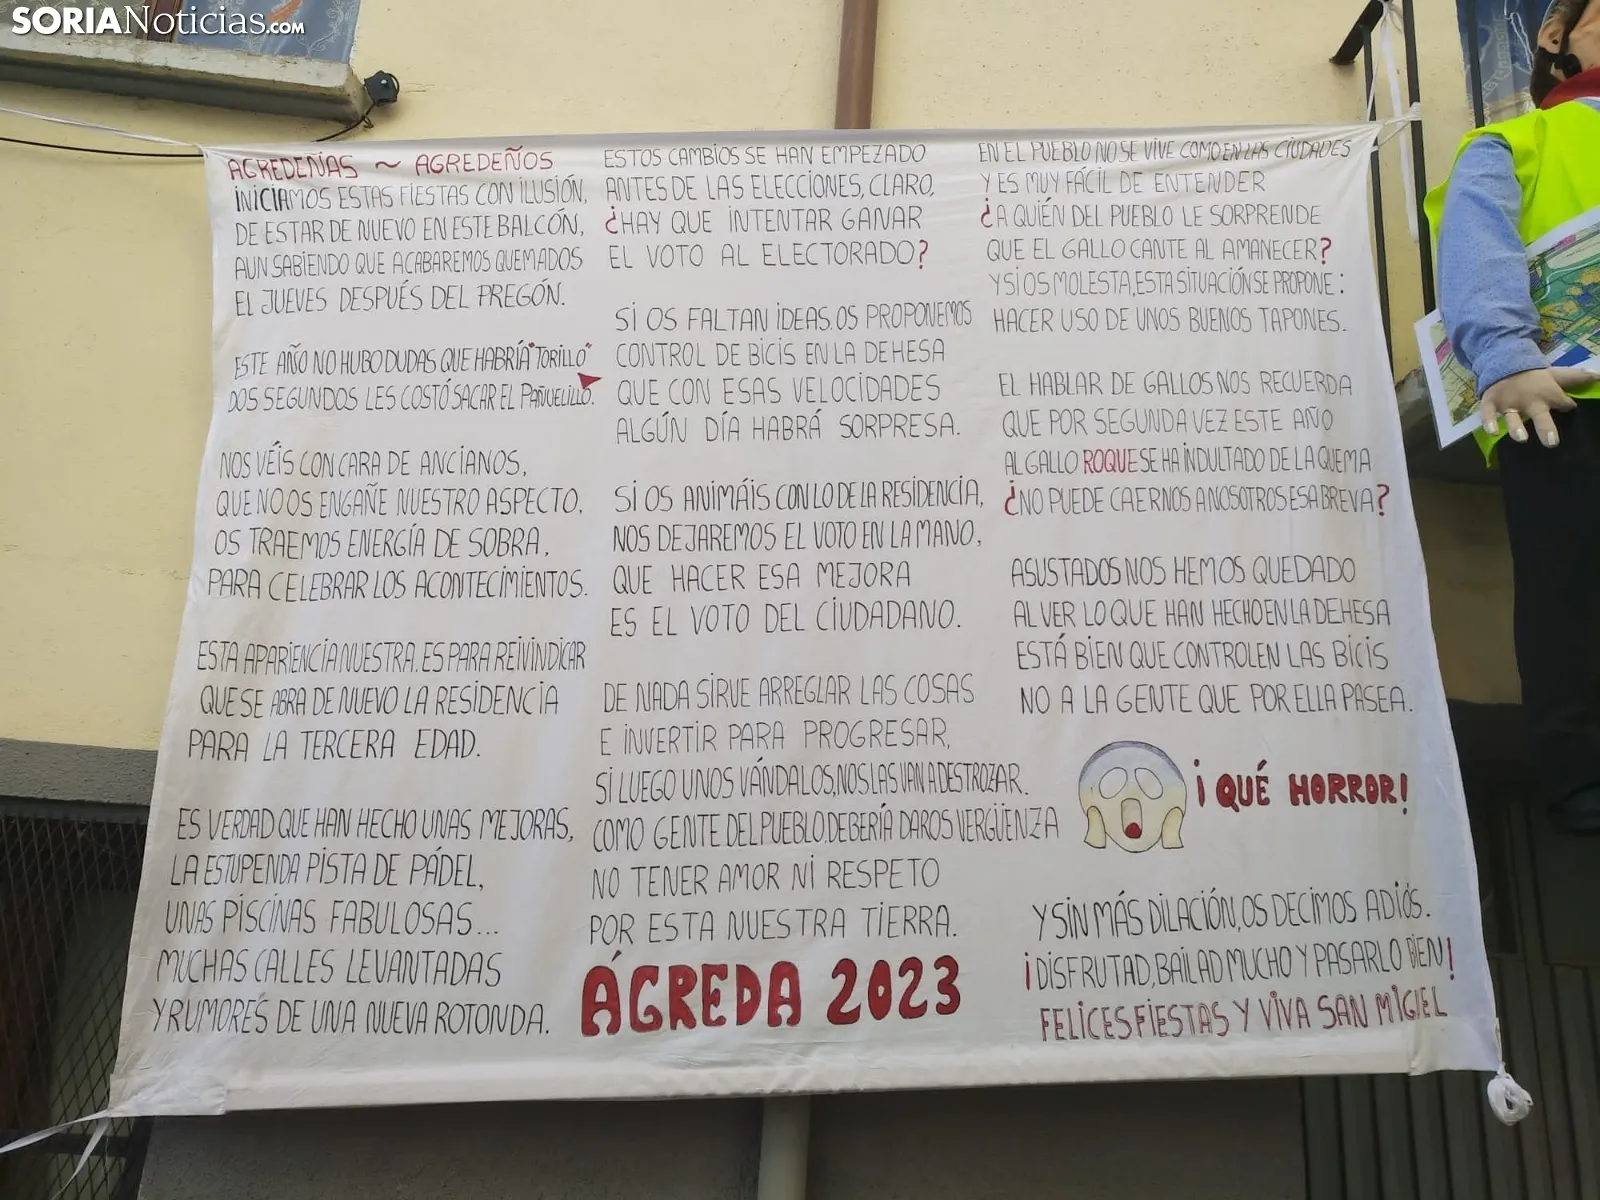 SORIANoticias.com
AGREDEÑAS ~ AGREDEÑOS
INICIAMOS ESTAS FIESTAS CON ILUSIÓN,
DE ESTAR DE NUEVO EN ESTE BALCÓN,
AUN SABIENDO QUE ACABAREMOS QUEMADOS
EL JUEVES DESPUÉS DEL PREGÓN.
ESTE AÑO NO HUBO DUDAS QUE HABRÍA "TORILLO"
DOS SEGUNDOS LES COSTÓ SACAR EL PAÑUELILLO.
NOS VÉIS CON CARA DE ANCIANOS,
QUE NO OS ENGAÑE NUESTRO ASPECTO,
OS TRAEMOS ENERGÍA DE SOBRA,
PARA CELEBRAR LOS ACONTECIMIENTOS.
ESTA APARIENCIA NUESTRA. ES PARA REIVINDICAR
QUE SE ABRA DE NUEVO LA RESIDENCIA
PARA LA TERCERA EDAD.
ES VERDAD QUE HAN HECHO UNAS MEJORAS,
LA ESTUPENDA PISTA DE PÁDEL,
UNAS PISCINAS FABULOSAS...
MUCHAS CALLES LEVANTADAS
Y RUMORES DE UNA NUEVA ROTONDA.
ESTOS CAMBIOS SE HAN EMPEZADO
ANTES DE LAS ELECCIONES, CLARO,
¿HAY QUE INTENTAR GANAR
EL VOTO AL ELECTORADO?
SI OS FALTAN IDEAS, OS PROPONEMOS
CONTROL DE BICIS EN LA DEHESA
QUE CON ESAS VELOCIDADES
ALGÚN DÍA HABRÁ SORPRESA.
SI OS ANIMÁIS CON LO DE LA RESIDENCIA,
NOS DEJAREMOS EL VOTO EN LA MANO,
QUE HACER ESA MEJORA
ES EL VOTO DEL CIUDADANO.
DE NADA SIRVE ARREGLAR LAS COSAS
E INVERTIR PARA PROGRESAR,
SI LUEGO UNOS VÁNDALOS, NOS LAS VAN A DESTROZAR.
COMO GENTE DEL PUEBLO, DEBERÍA DAROS VERGÜENZA
NO TENER AMOR NI RESPETO
POR ESTA NUESTRA TIERRA.
ÁGREDA 2023
EN EL PUEBLO NO SE VIVE COMO EN LAS CIUDADES
Y ES MUY FÁCIL DE ENTENDER
¿A QUIÉN DEL PUEBLO LE SORPRENDE
QUE EL GALLO CANTE AL AMANECER?
Y SI OS MOLESTA, ESTA SITUACIÓN SE PROPONE:
HACER USO DE UNOS BUENOS TAPONES.
EL HABLAR DE GALLOS NOS RECUERDA
QUE POR SEGUNDA VEZ ESTE AÑO
AL GALLO ROQUE SE HA INDULTADO DE LA QUEMA
¿NO PUEDE CAERNOS A NOSOTROS ESA BREVA?
ASUSTADOS NOS HEMOS QUEDADO
AL VER LO QUE HAN HECHO EN LA DEHESA
ESTÁ BIEN QUE CONTROLEN LAS BICIS
NO A LA GENTE QUE POR ELLA PASEA.
¡QUÉ HORROR!
Y SIN MÁS DILACIÓN, OS DECIMOS ADIÓS.
¡DISFRUTAD, BAILAD MUCHO Y PASARLO BIEN!
FELICES FIESTAS Y VIVA SAN MIGUEL